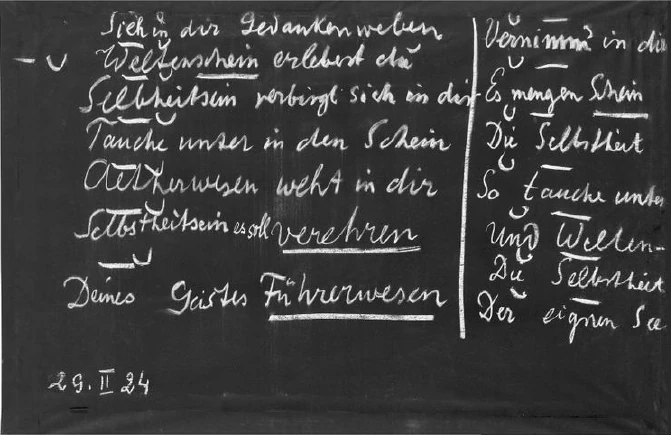 Sieh in dir Gedankenweben
Weltenschein erlebest du
Selbstheitsein verbirgt sich in dir
Tauche unter in den Schein
Aetherwesen weht in dir
Selbstheitsein es soll verehren
Deines Geistes Führerwesen
29. II 24
Vernimm in dir
Es mengen Schein
Die Selbstheit
So tauche unter
Und Welten-
Die Selbstheit
Der eignen See